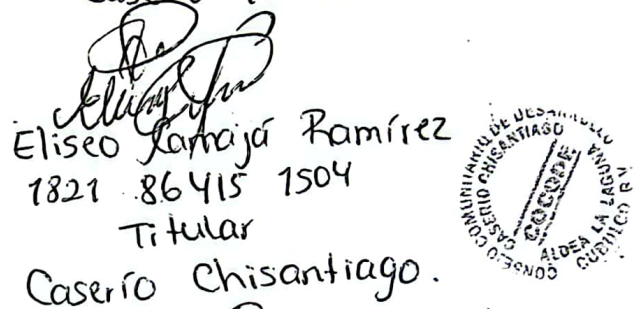 Caserío
Eliseo Xamajá Ramírez
1821 86415 1504
Titular
Caserío Chisantiago.
CONSEJO COMUNITARIO DE DESARROLLO
CASERIO CHISANTIAGO
COCODE
ALDEA LA LAGUNA
CUBULCO B.V.